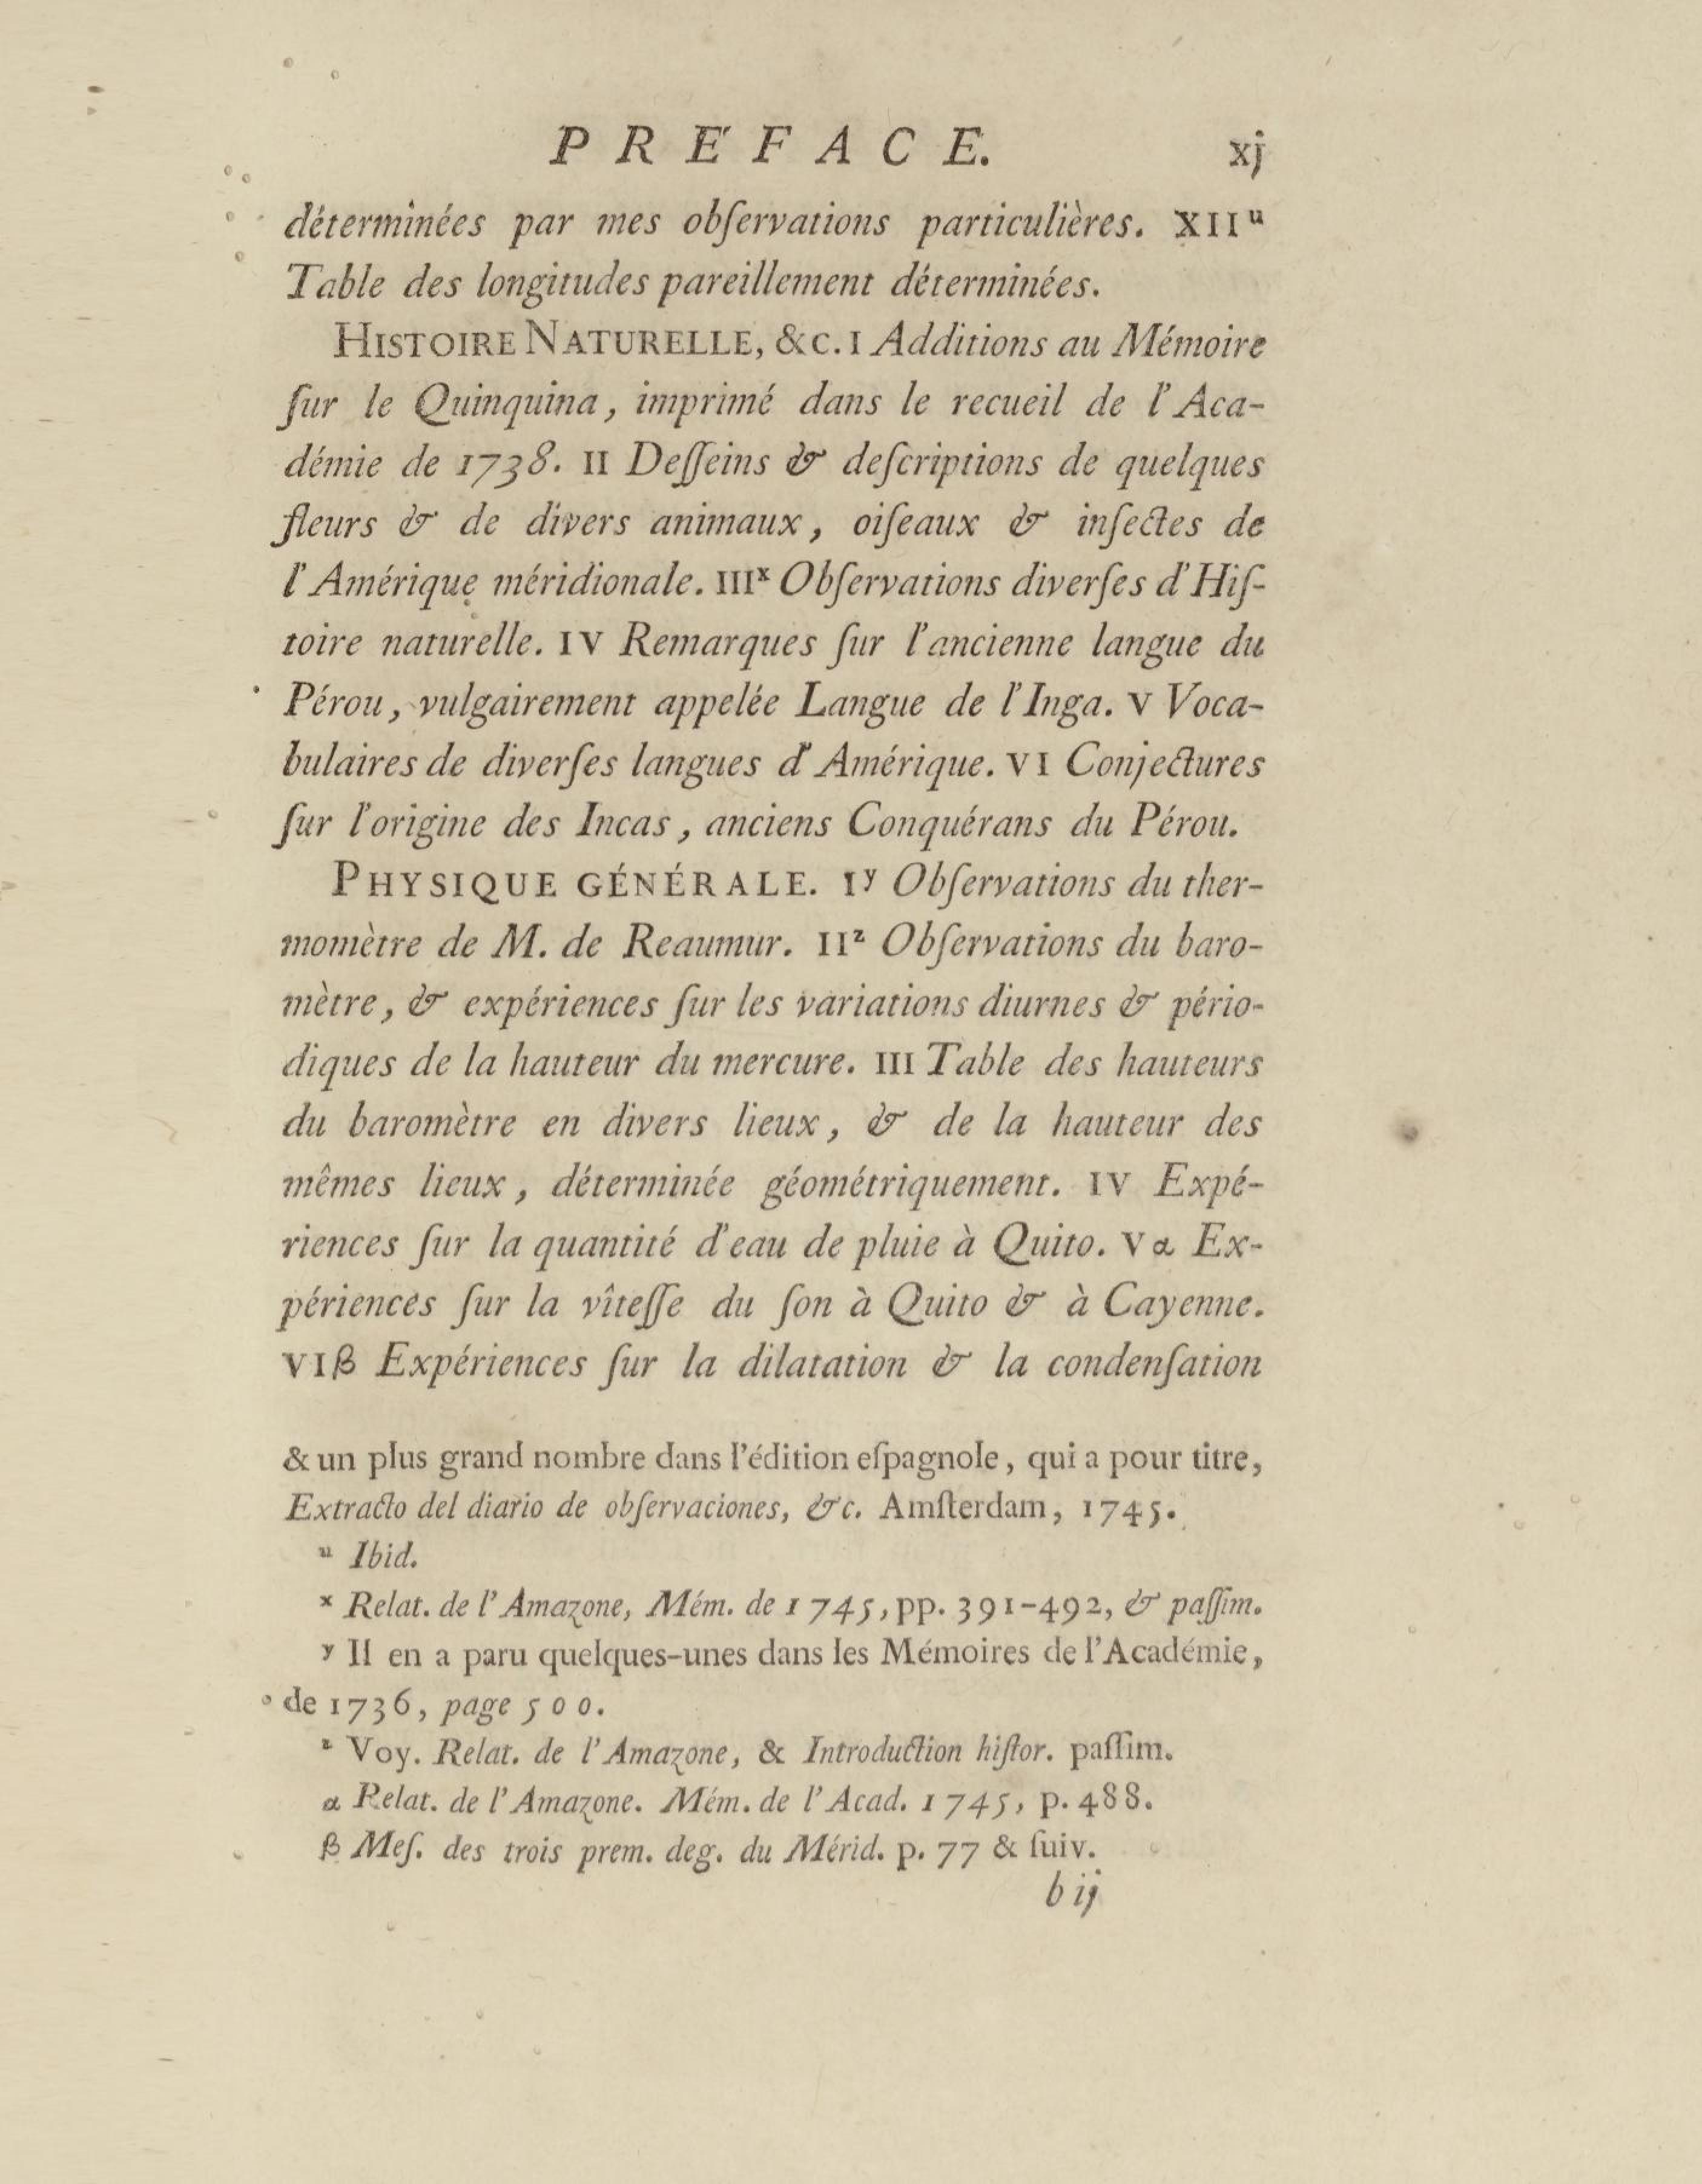 PRÉFACE. xj
déterminées par mes obſervations particulières. XII u
Table des longitudes pareillement déterminées.
HISTOIRE NATURELLE, &C. I Additions au Mémoire
ſur le Quinquina, imprimé dans le recueil de l'Aca-
démie de 1738. II Deſſeins & deſcriptions de quelques
fleurs & de divers animaux, oiſeaux & inſectes de
l'Amérique méridionale. III x Obſervations diverſes d'Hiſ-
toire naturelle. IV Remarques ſur l'ancienne langue du
Pérou, vulgairement appelée Langue de l'Inga. V Voca-
bulaires de diverſes langues d'Amérique. VI Conjectures
ſur l'origine des Incas, anciens Conquérans du Pérou.
PHYSIQUE GÉNÉRALE. I y Obſervations du ther-
momètre de M. de Reaumur. II z Obſervations du baro-
mètre, & expériences ſur les variations diurnes & pério-
diques de la hauteur du mercure. III Table des hauteurs
du baromètre en divers lieux, & de la hauteur des
mêmes lieux, déterminée géométriquement. IV Expé-
riences ſur la quantité d'eau de pluie à Quito. V α Ex-
périences ſur la vîteſſe du ſon à Quito & à Cayenne.
VI β Expériences ſur la dilatation & la condenſation
& un plus grand nombre dans l'édition eſpagnole, qui a pour titre,
Extracto del diario de obſervaciones, &c. Amſterdam, 1745.
u Ibid.
x Relat. de l'Amazone, Mém. de 1745, pp. 391-492, & paſſim.
y Il en a paru quelques-unes dans les Mémoires de l'Académie,
de 1736, page 500.
z Voy. Relat. de l'Amazone, & Introduction hiſtor. paſſim.
α Relat. de l'Amazone. Mém. de l'Acad. 1745, p. 488.
β Meſ. des trois prem. deg. du Mérid. p. 77 & ſuiv.
b ij